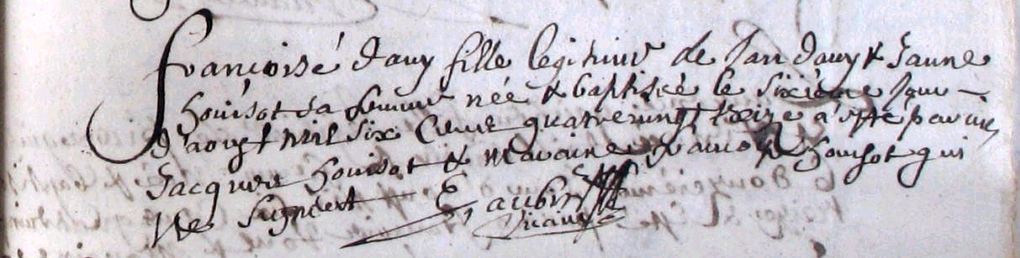 françoise dauy fille legitime de Jan dauy & Janne
houisot sa femme née & baptisée le sixiéme Jour
d'aoust mil six Cens quatrevingt treize a esté parain
Jacques houisot & maraine houisot qui
Ne signent G aubin
vicaire